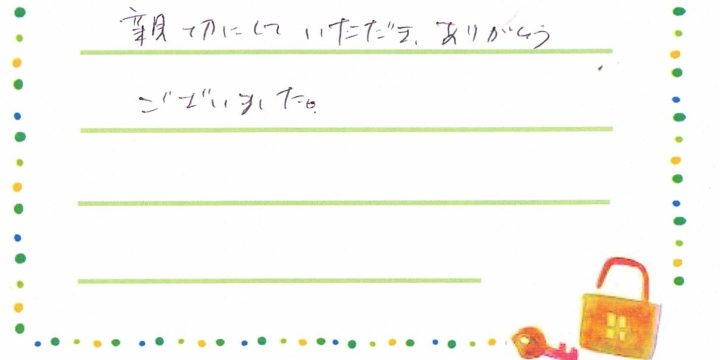 親切にして いただき、ありがとう
ございました。